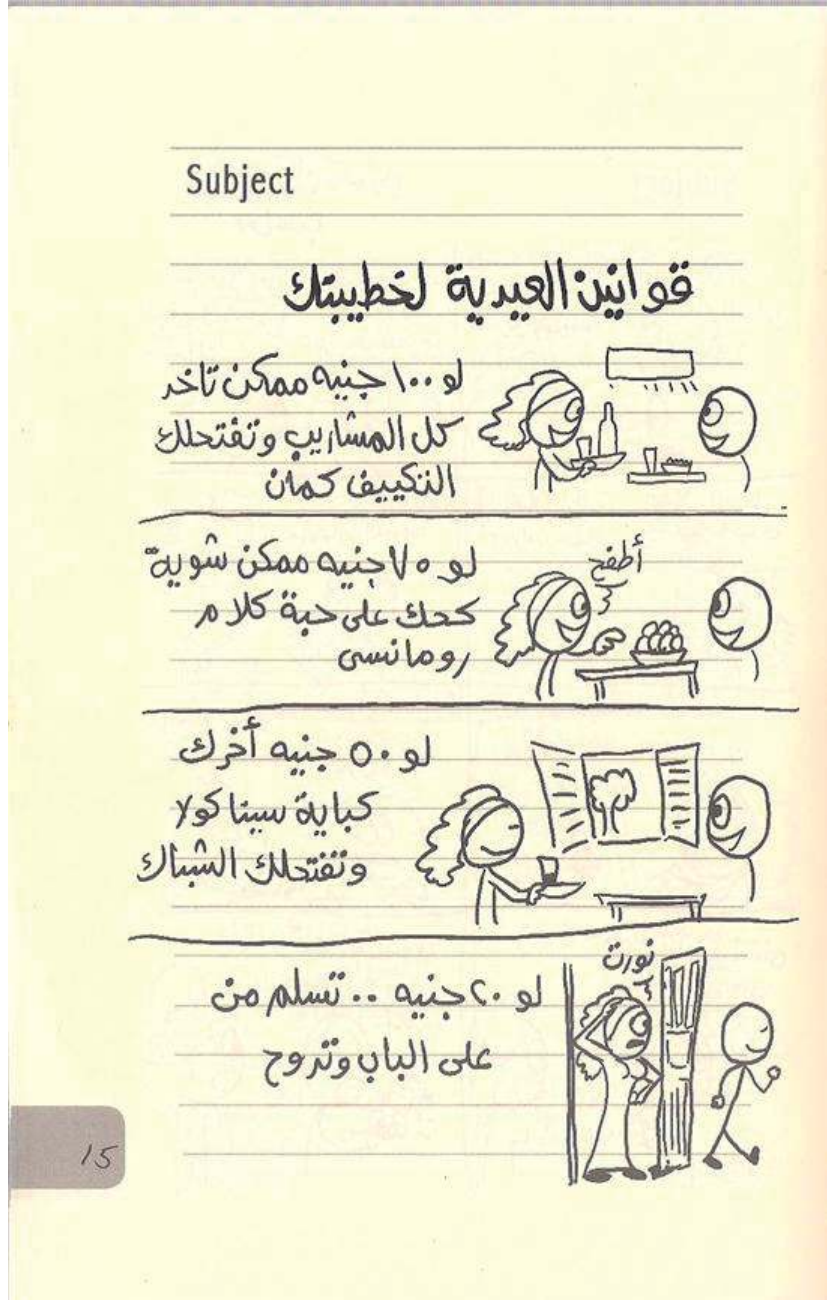 Subject
قوانين العيدية لخطيبتك
لو ١٠٠ جنيه ممكن تاخد
كل المشاريب وتفتحلك
التكييف كمان
لو ٧٥ جنيه ممكن شوية
كحك على حبة كلام
رومانسى
أطفح
لو ٥٠ جنيه أخرك
كباية سينا كولا
وتفتحلك الشباك
لو ٢٠ جنيه .. تسلم من
على الباب وتروح
نورت
15